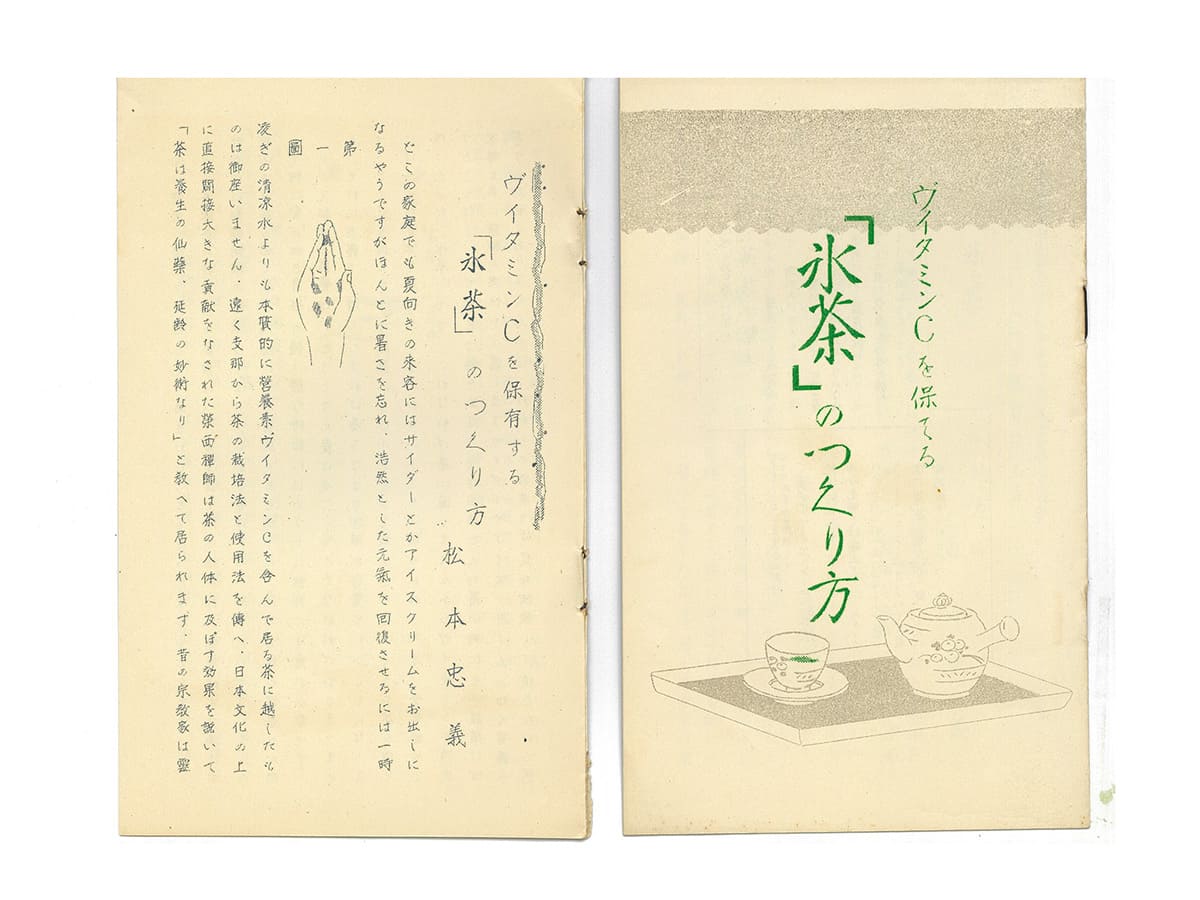 ヴイタミンCを保てる
「氷茶」のつくり方
ヴイタミンCを保有する
「氷茶」のつくり方
松本忠義
どこの家庭でも夏向きの来客にはサイダーとかアイスクリームをお出しに
なるやうですがほんとに暑さを忘れ、浩然とした元氣を回復させるには一時
第一圖
凌ぎの清凉水よりも本質的に營養素ヴイタミンCを含んで居る茶に越したも
のは御座いません、遠く支那から茶の栽培法と使用法を傳へ、日本文化の上
に直接間接大きな貢献をなされた榮西禪師は茶の人体に及ぼす効果を説いて
「茶は養生の仙藥、延齢の妙術なり」と教へて居られます、昔の宗教家は靈